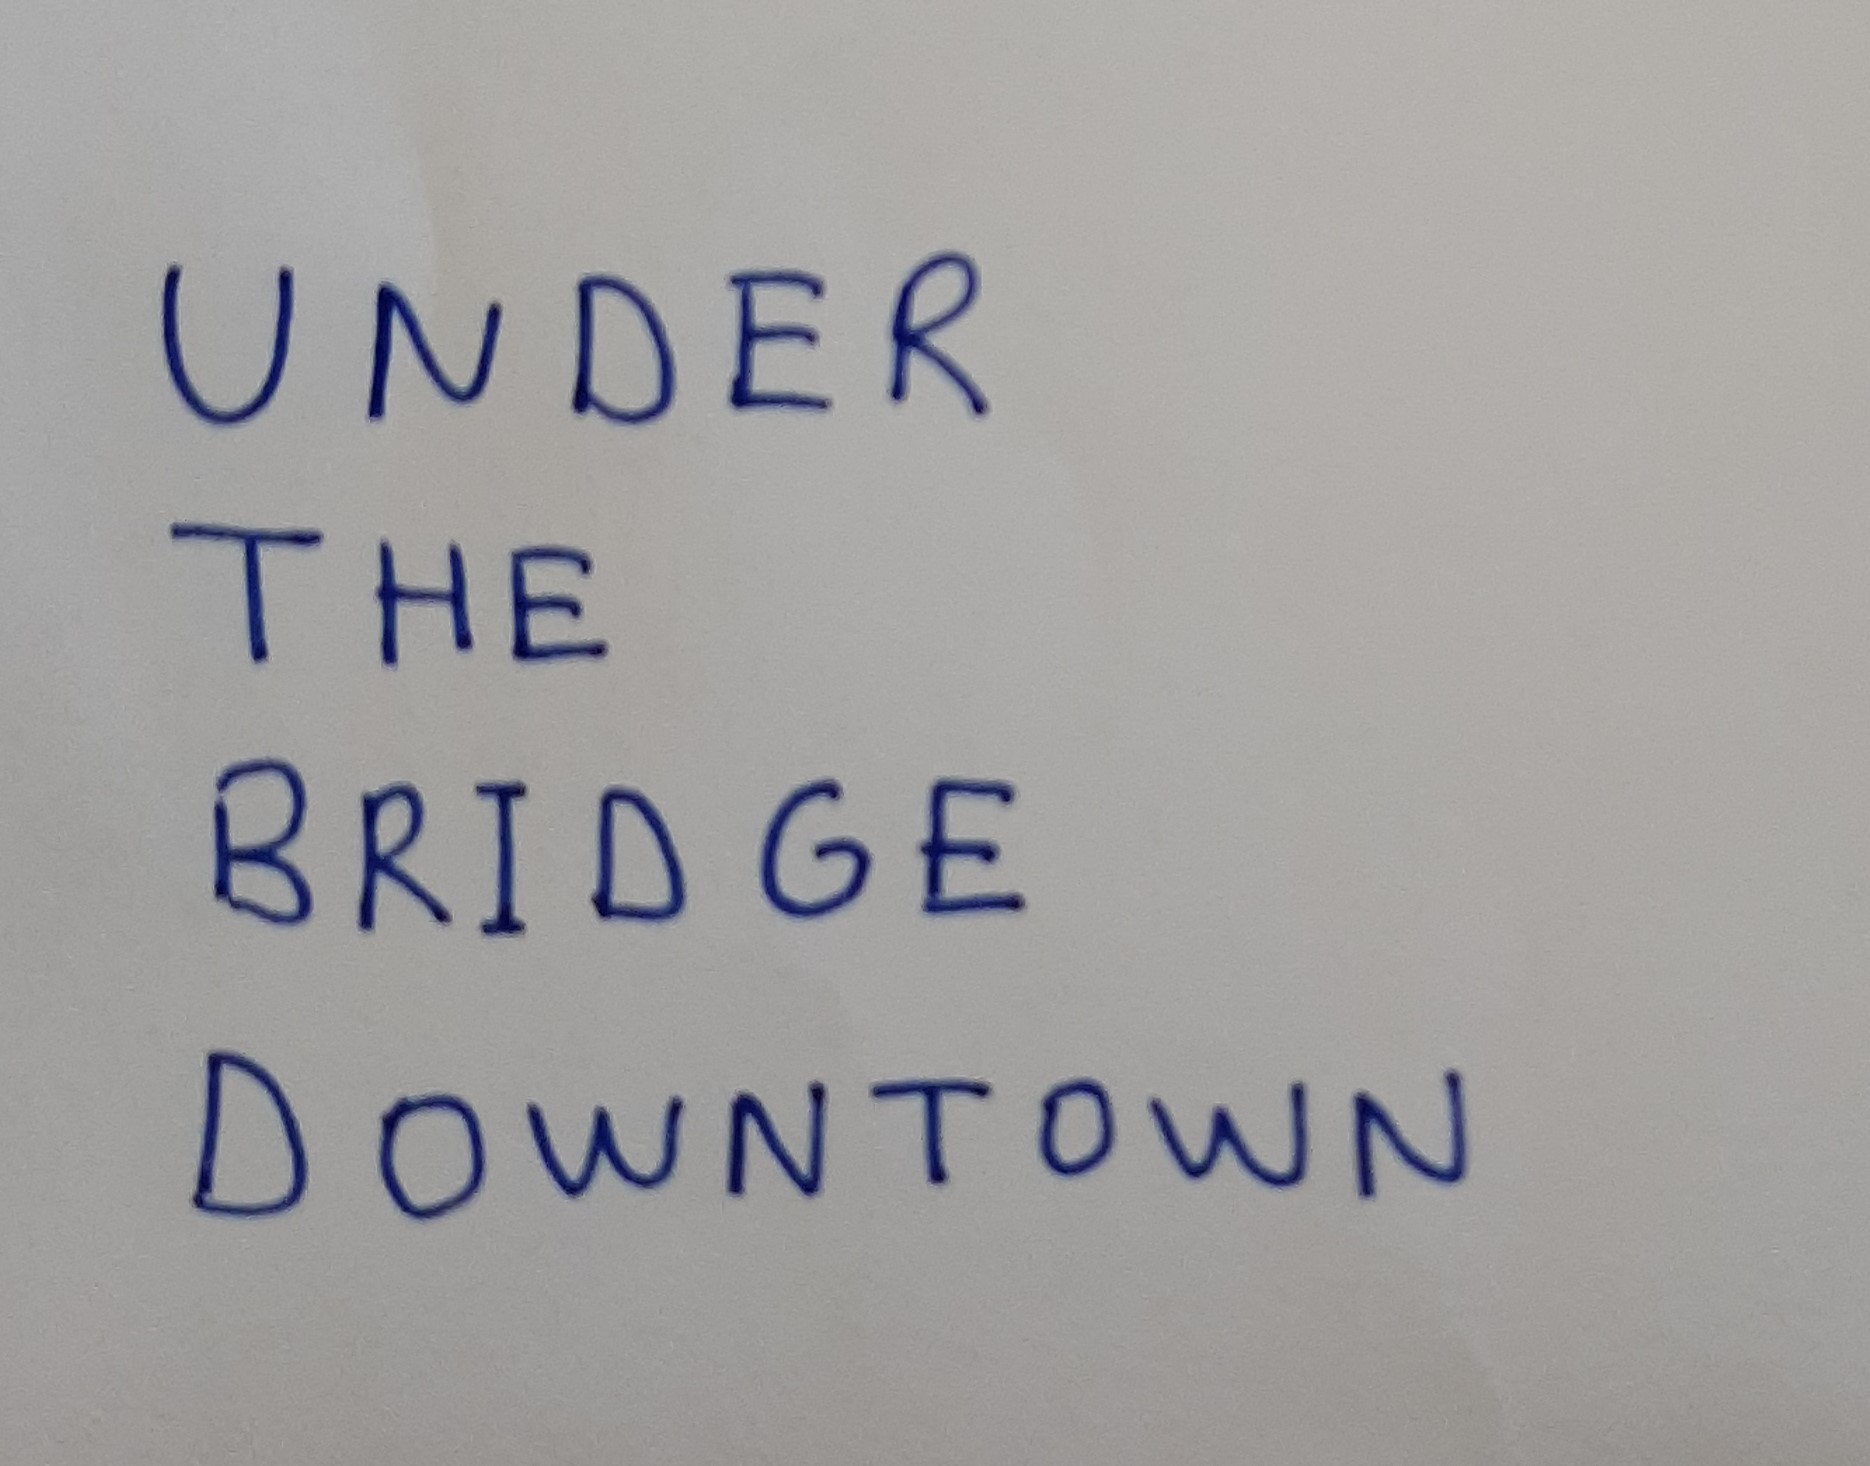 UNDER
THE
BRIDGE
DOWNTOWN